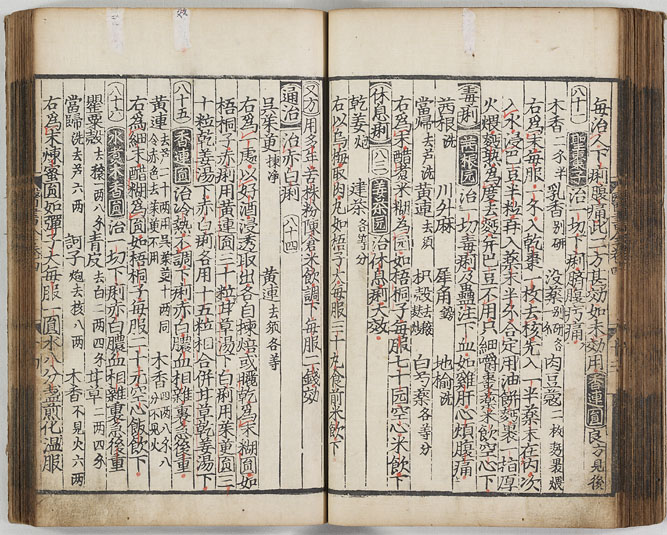 每治人下痢腹痛此一方甚効如未効用香連圓良方見後
八十一聖棗子治一切下痢臍腹疞痛
木香二个半 乳香別研 沒藥別研各 肉豆蔻二枚麪裹煨
右為末每服一个入乾棗一枚去核先入一半藥末在內次
入江巴豆半粒再入藥末半个合定用油餅麪裹一指厚
火煨麪熟為度去麪并巴豆不用只細嚼棗藥米飲空心下
毒痢茜根圓治一切毒痢及蠱注下血如雞肝心煩腹痛
茜根洗 川升麻 犀角鎊 地榆洗
當歸去芦洗 黃連去須 枳殼去穰麩炒 白芍藥各等分
右為末醋煮米糊為圓如梧桐子每服七十圓空心米飲下
休息痢八三姜茶圓治休息痢大效
乾姜炮 建茶各等分
右以烏梅取肉丸如梧子大每服三十丸食前米飲下
又方用多年苦株粉陳倉米飲調下每服二錢効
通治治赤白痢八十四
吳茱萸揀淨 黃連去須各等
右為一處以好酒浸透取出各自揀焙或曬乾為末糊圓如
梧桐子赤痢用黃連圓三十粒甘草湯下白痢用茱萸圓三
十粒乾姜湯下赤白痢各用十五粒相合併甘草乾姜湯下
八十五香連圓治冷熱不調下痢赤白膿血相雜裏急後重
黃連去芦二十兩用吳茱萸十兩同 木香四兩八
右為細末醋糊為圓如梧桐子每服二十丸空心飯飲下
八十六水煮木香圓治一切下痢赤白膿血相雜裏急後重
罌粟殼去穰 青皮去白二兩四 甘草二兩四
當歸洗去芦六兩 訶子炮去核八兩 木香不見火六兩
右為末煉蜜圓如彈子大每服一圓水八分盞煎化溫服